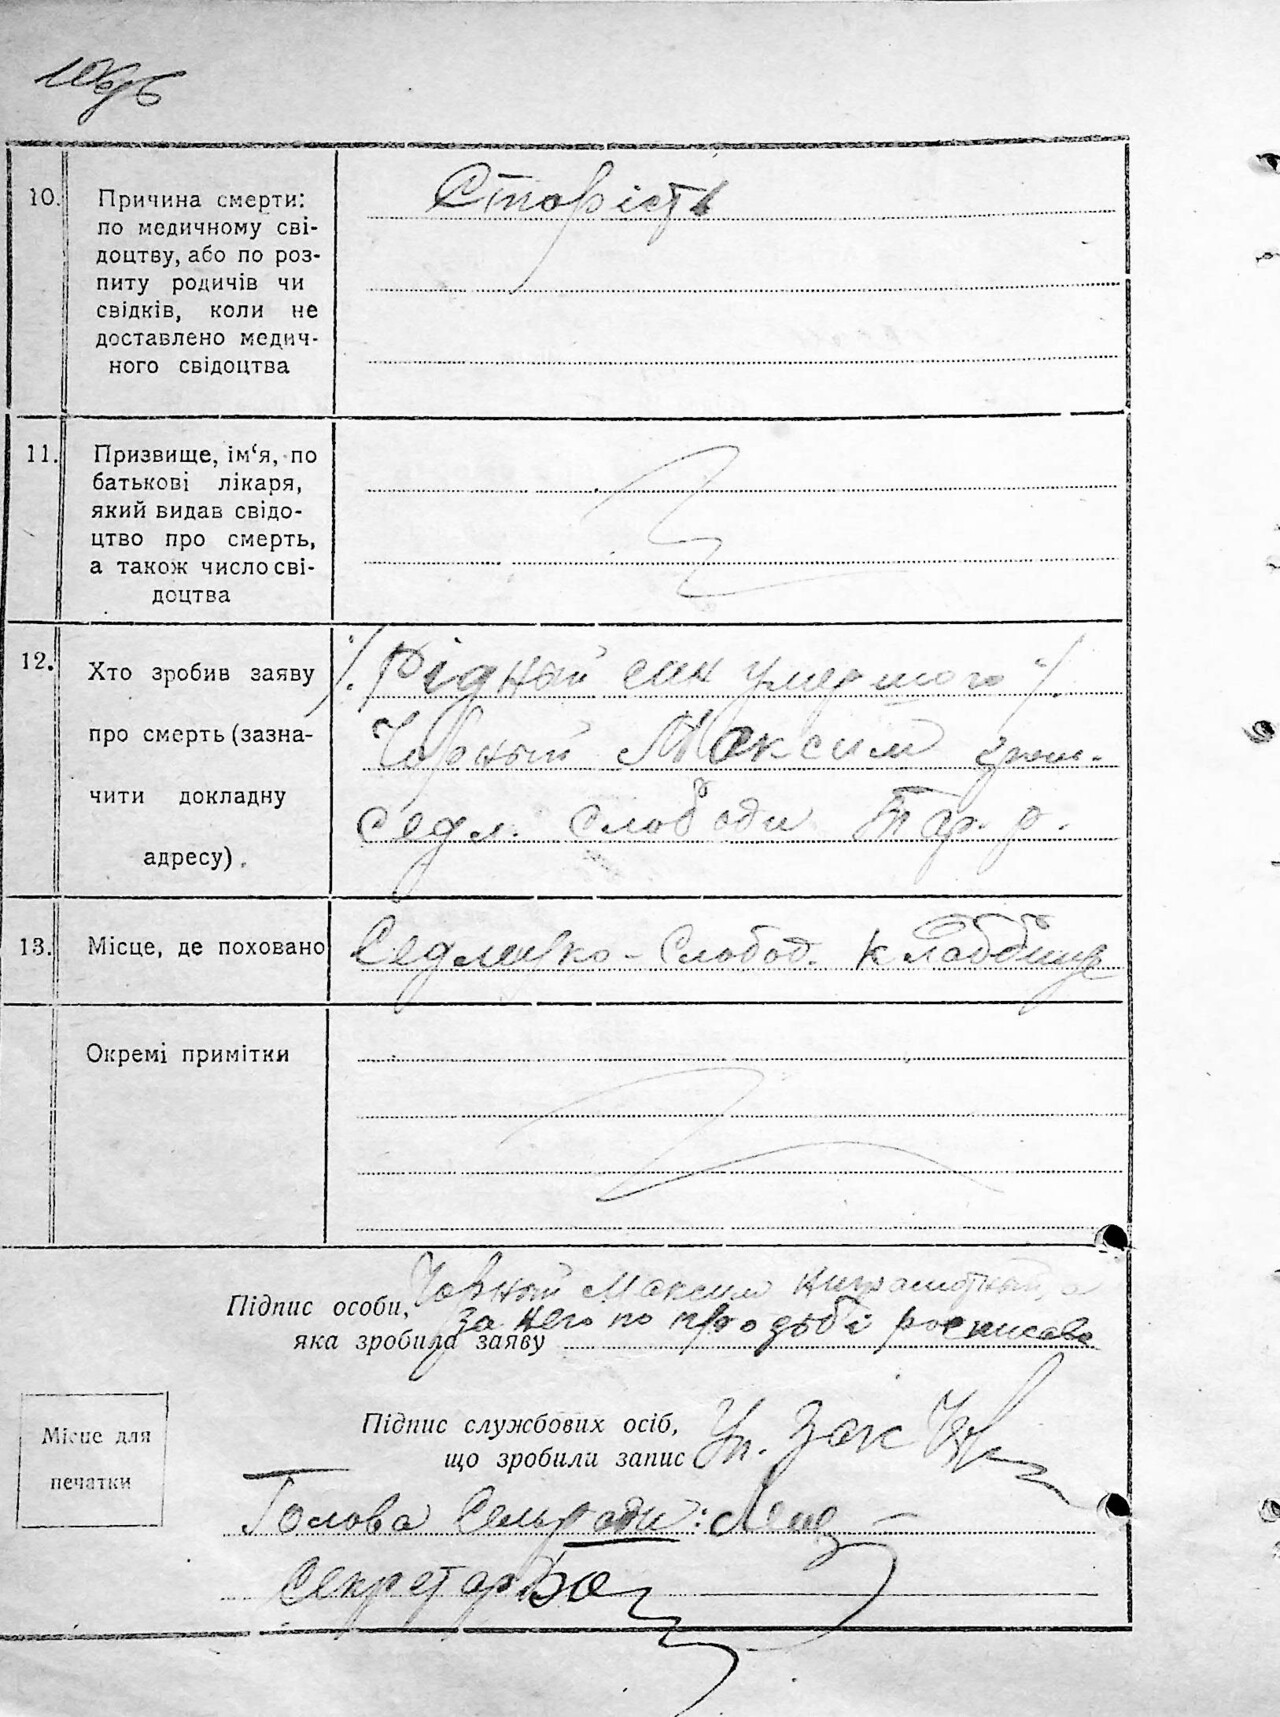 10.
Причина смерти:
по медичному сві-
доцтву, або по роз-
питу родичів чи
свідків, коли не
доставлено медич-
ного свідоцтва
Старість
11.
Призвище, ім‘я, по
батькові лікаря,
який видав свідо-
цтво про смерть,
а також число сві-
доцтва
12.
Хто зробив заяву
про смерть (зазна-
чити докладну
адресу).
Рідний син умершого
Чорный Максим
Седл. Слободи Тар. р.
13.
Місце, де поховано
Седлецко-Слобод. кладбище
Окремі примітки
Підпис особи,
яка зробила заяву
Чорный Максим
за него по просьбі росписавс
Місце для
печатки
Підпис службових осіб,
що зробили запис
Уп. Закс
Голова Сельради:
Секретар